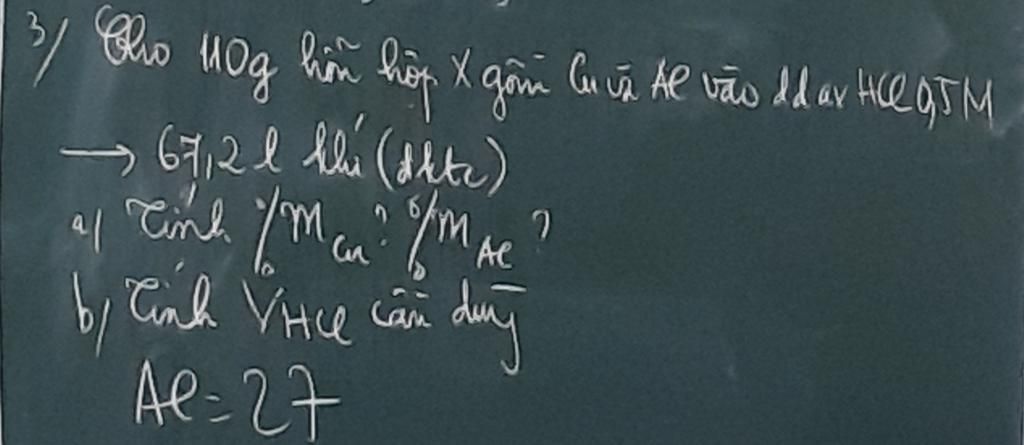 3/ Cho 110g hỗn hợp X gồm Cu và Al vào dd ax HCl 0,5M
→ 67,2 l khí (đktc)
a/ Tính %m Cu? %m Al?
b/ Tính VHCl cần dùng
Al = 27